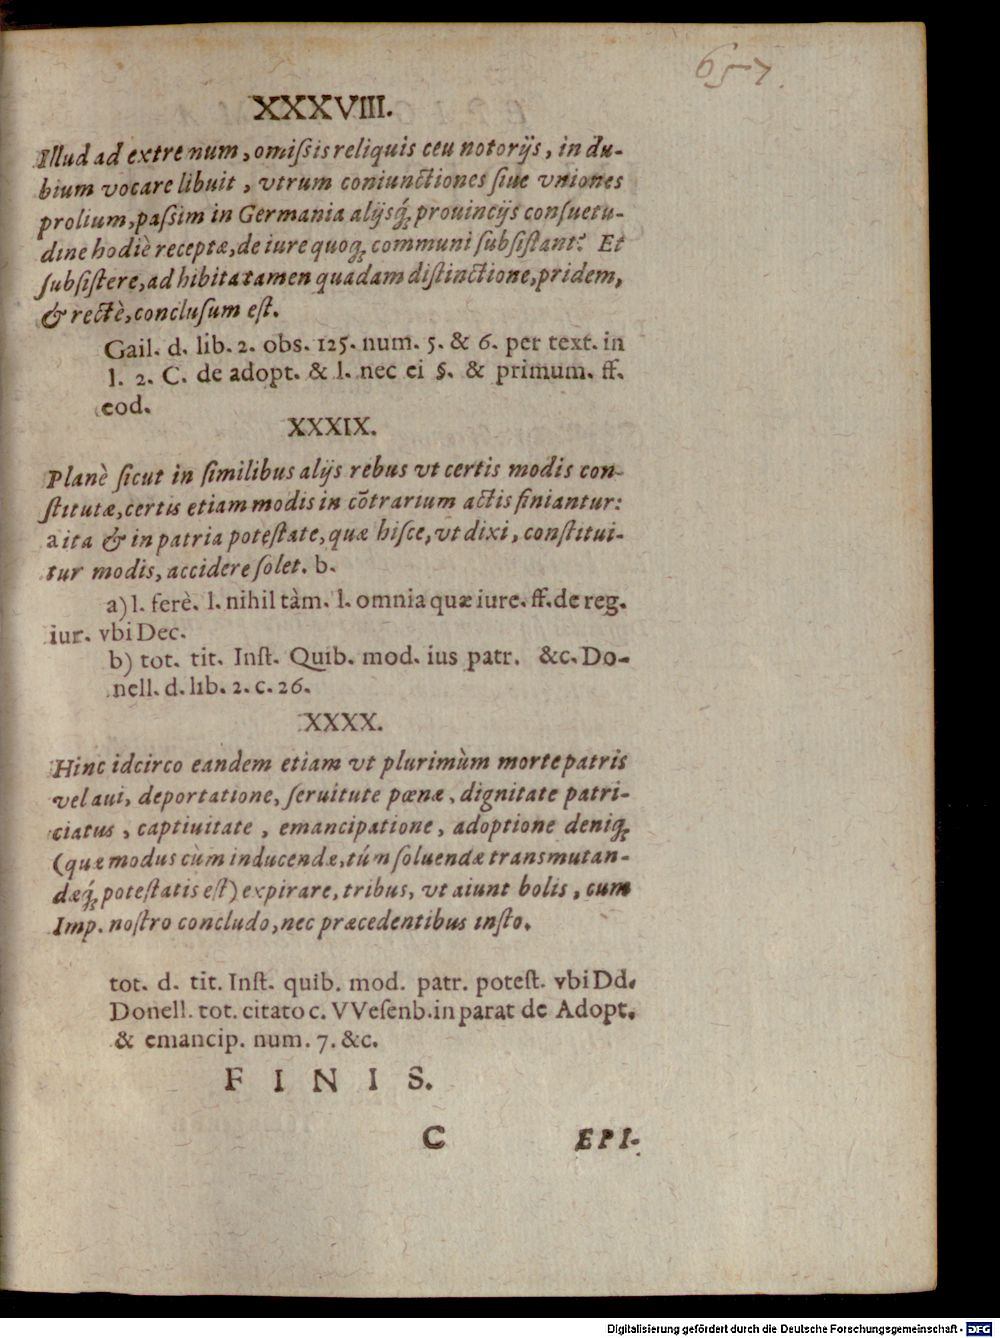 657
XXXVIII.
Illud ad extre num, omiſsis reliquis ceu notorijs, in du-
bium vocare libuit, vtrum coniunctiones ſiue vniones
prolium, paſsim in Germania alijsq́ꝫ prouincijs conſuetu-
dine hodiè receptæ, de iure quoqꝫ communi ſubſiſtant? Et
ſubſiſtere, ad hibita tamen quadam diſtinctione, pridem,
& rectè, concluſum eſt.
Gail. d. lib. 2. obs. 125. num. 5. & 6. per text. in
l. 2. C. de adopt. & l. nec ei §. & primum. ff.
eod.
XXXIX.
Planè ſicut in ſimilibus alijs rebus vt certis modis con-
ſtitutæ, certis etiam modis in cõtrarium actis finiantur:
a ita & in patria poteſtate, quæ hiſce, vt dixi, conſtitui-
tur modis, accidere ſolet. b.
a) l. ferè. l. nihil tàm. l. omnia quæ iure. ff. de reg.
iur. vbi Dec.
b) tot. tit. Inſt. Quib. mod. ius patr. &c. Do-
nell. d. lib. 2. c. 26.
XXXX.
Hinc idcirco eandem etiam vt plurimùm morte patris
vel aui, deportatione, ſeruitute pœnæ, dignitate patri-
ciatus, captiuitate, emancipatione, adoptione deniqꝫ
(quæ modus cùm inducendæ, túm ſoluendæ transmutan-
dæq́ꝫ poteſtatis eſt) expirare, tribus, vt aiunt bolis, cum
Imp. noſtro concludo, nec præcedentibus inſto.
tot. d. tit. Inſt. quib. mod. patr. poteſt. vbi Dd.
Donell. tot. citato c. VVeſenb. in parat de Adopt.
& emancip. num. 7. &c.
F I N I S.
C EPI-
Digitalisierung gefördert durch die Deutsche Forschungsgemeinschaft - DFG